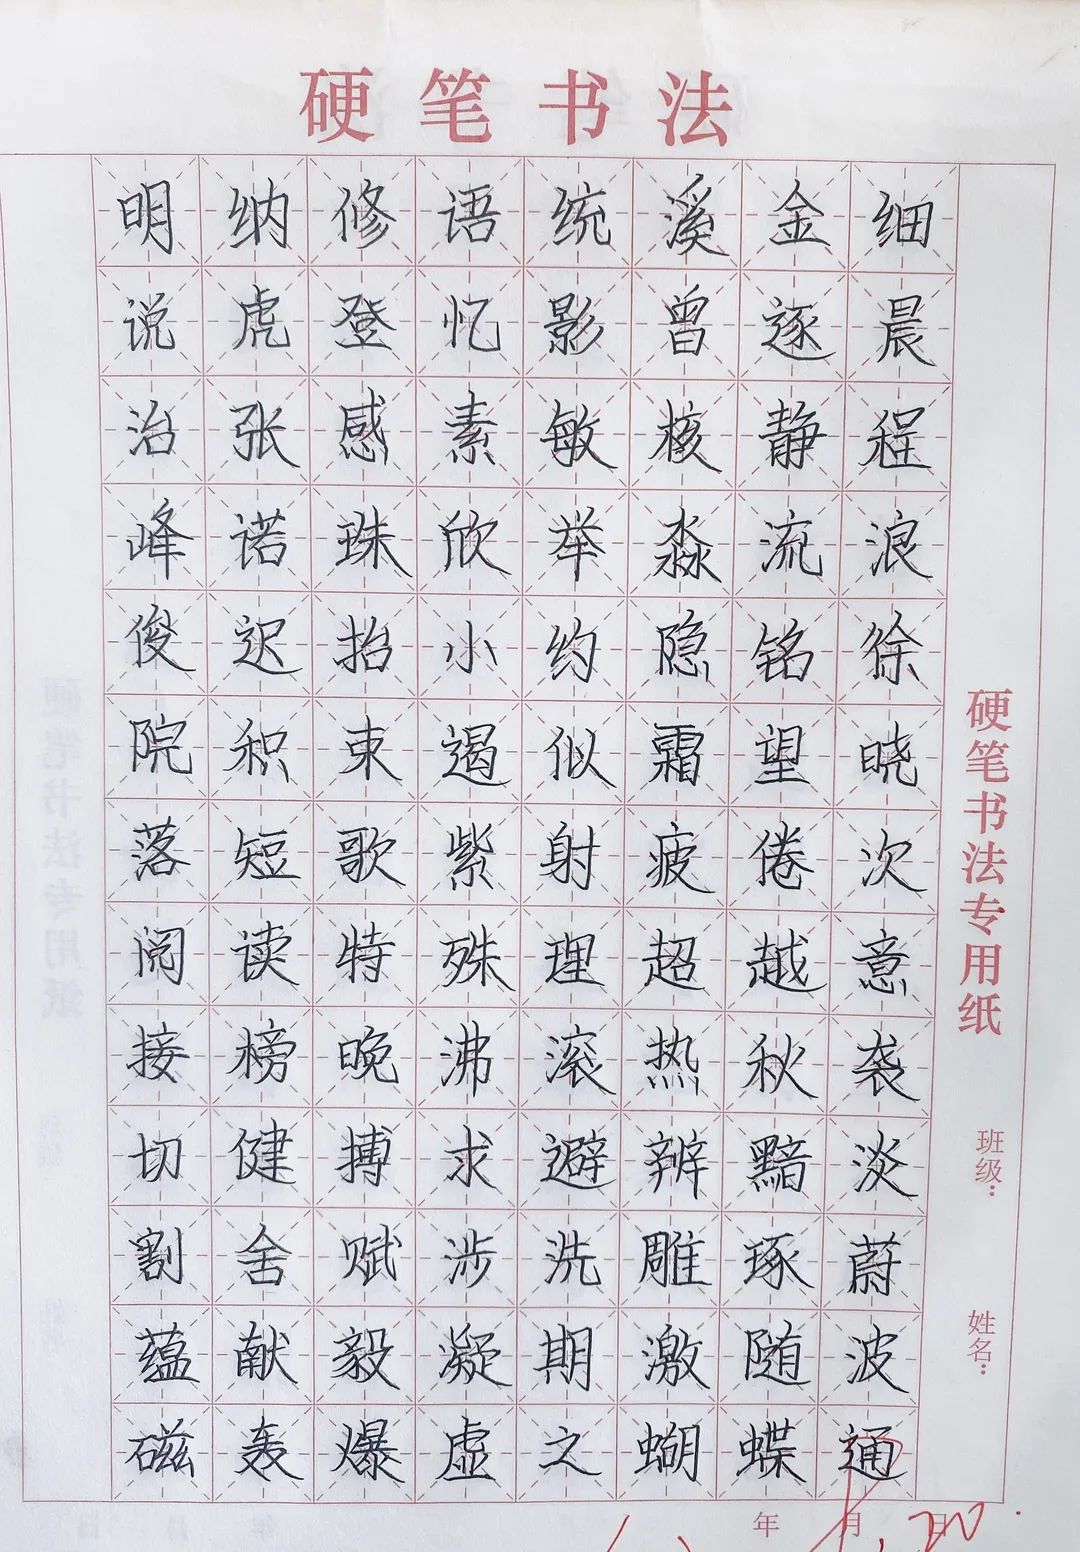 硬笔书法
明纳修语统溪金细
说虎登忆影曾逐晨
治张感素敏核静程
峰诺珠欣举淼流浪
俊迟抬小约隐铭徐
院积束遏似霜望晓
落短歌紫射疲倦次
阅读特殊理超越意
接榜晚沸滚热秋袭
切健搏求避辨黯淡
割舍赋涉洗雕琢蔚
蕴献毅凝期激随波
磁轰爆虚之蝴蝶通
硬笔书法专用纸
班级：
姓名：
年 月 日